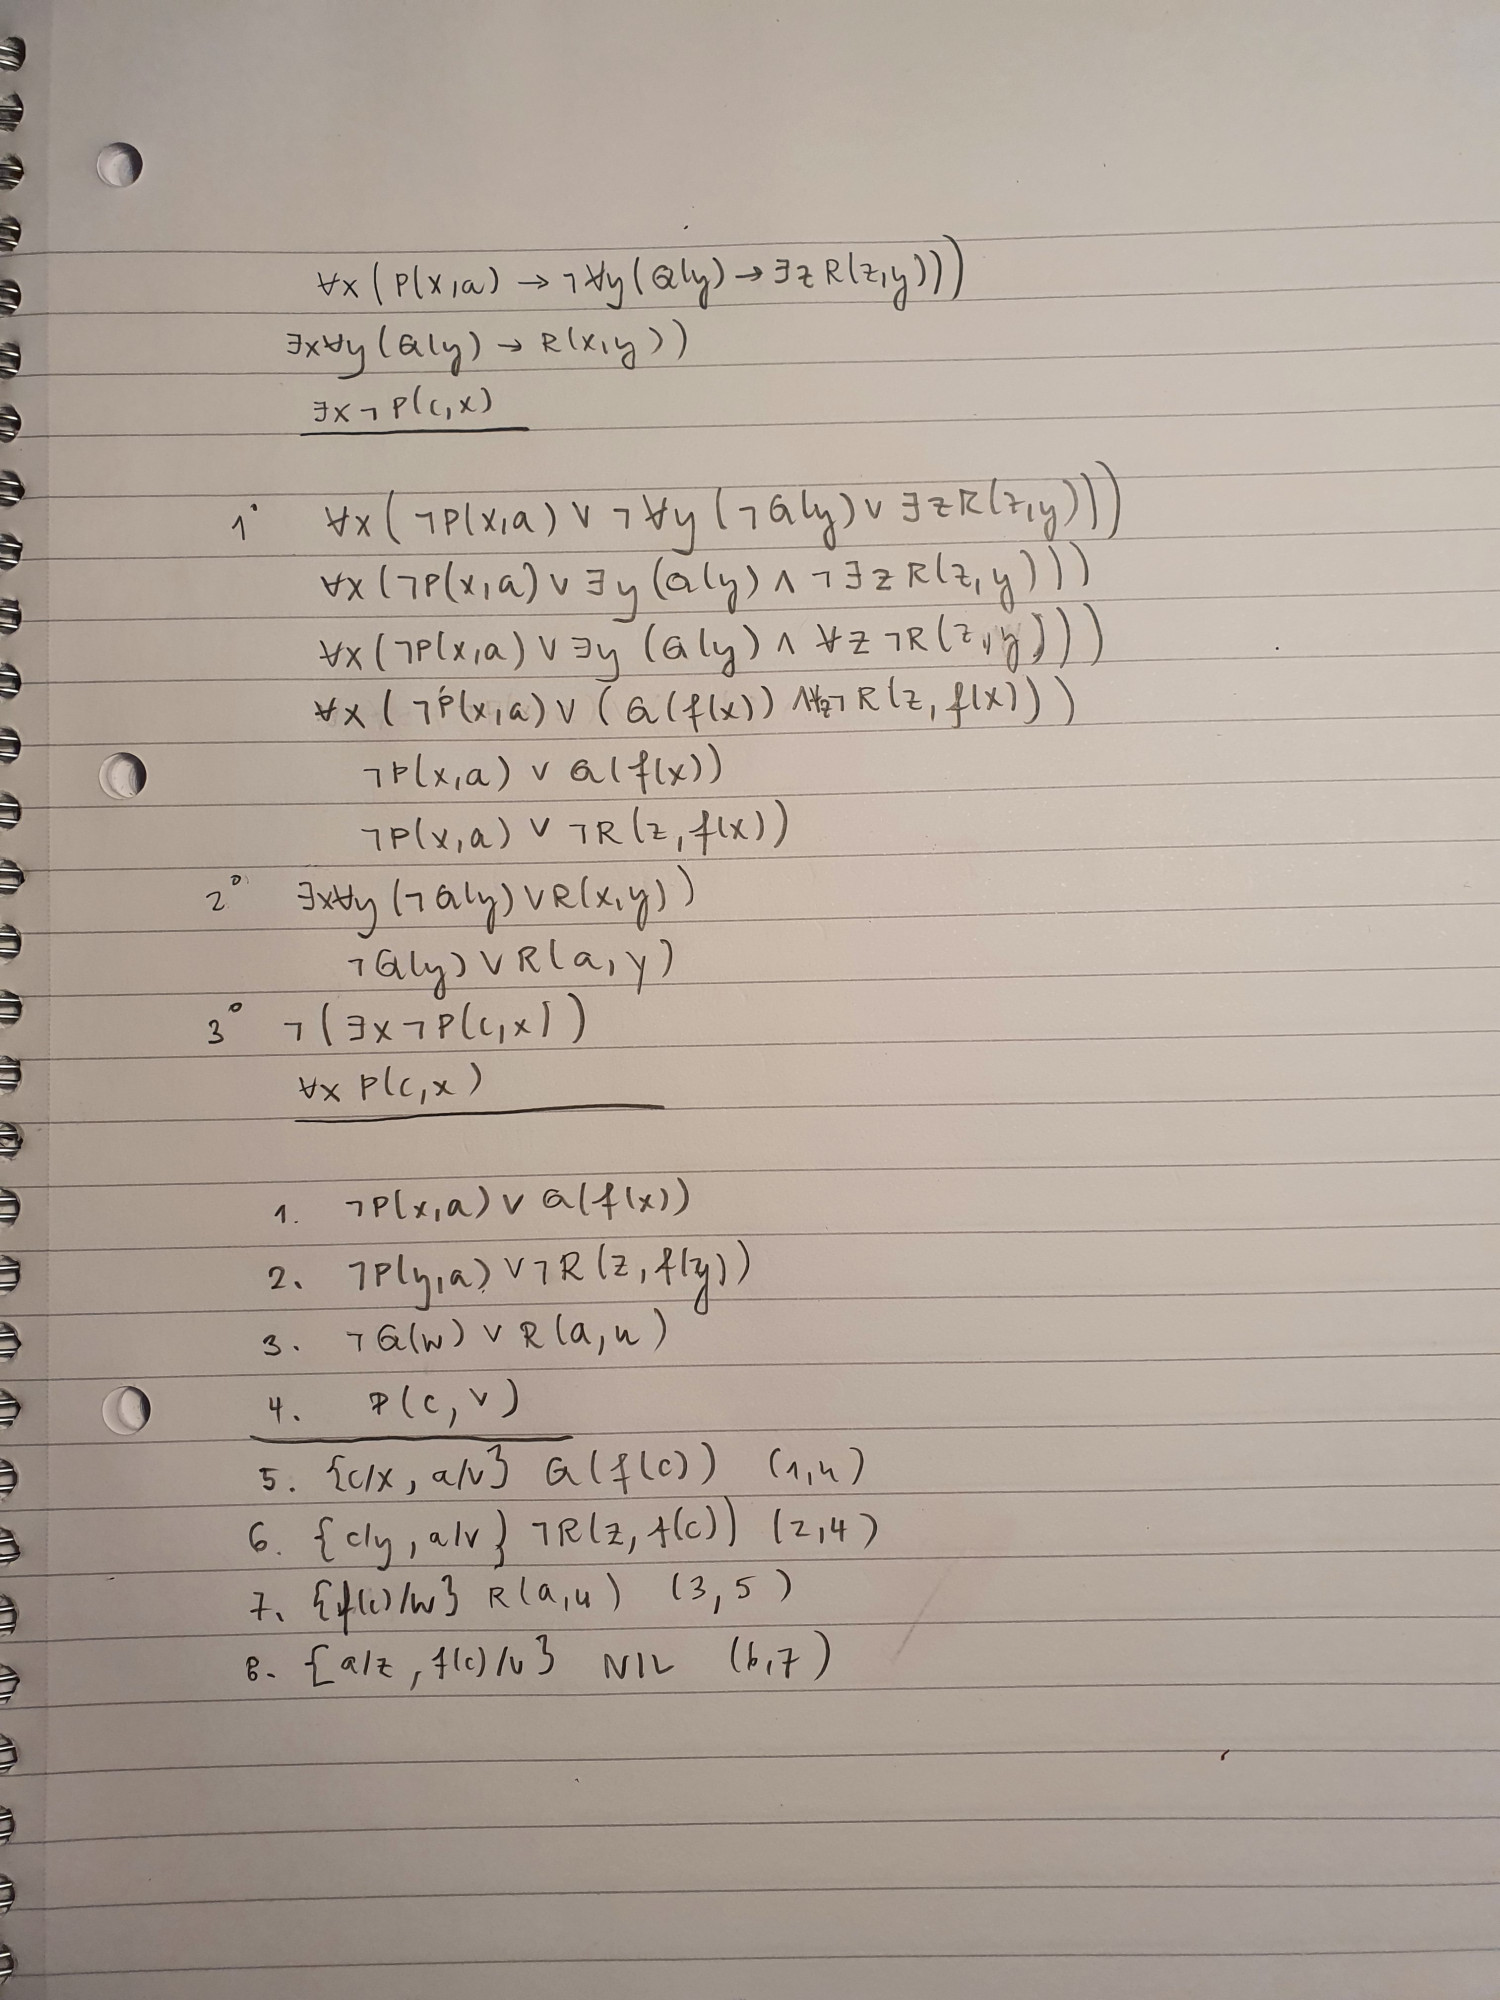 ∀x(P(x,a) → ¬∀y(Q(y) → ∃zR(z,y)))
∃x∀y(Q(y) → R(x,y))
∃x¬P(c,x)
1° ∀x(¬P(x,a) ∨ ¬∀y(¬Q(y) ∨ ∃zR(z,y)))
∀x(¬P(x,a) ∨ ∃y(Q(y) ∧ ¬∃zR(z,y)))
∀x(¬P(x,a) ∨ ∃y(Q(y) ∧ ∀z¬R(z,y)))
∀x(¬P(x,a) ∨ (Q(f(x)) ∧∀z¬R(z,f(x)))
¬P(x,a) ∨ Q(f(x))
¬P(x,a) ∨ ¬R(z,f(x))
2° ∃x∀y(¬Q(y) ∨ R(x,y))
¬Q(y) ∨ R(a,y)
3° ¬(∃x¬P(c,x))
∀x P(c,x)
1. ¬P(x,a) ∨ Q(f(x))
2. ¬P(y,a) ∨ ¬R(z,f(y))
3. ¬Q(w) ∨ R(a,u)
4. P(c,v)
5. {c/x, a/v} Q(f(c)) (1,4)
6. {c/y, a/v} ¬R(z,f(c)) (2,4)
7. {f(c)/w} R(a,u) (3,5)
8. {a/z, f(c)/u} NIL (6,7)